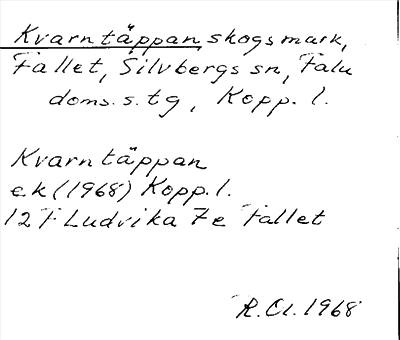 Kvarntäppan, skogsmark,
Fallet, Silvbergs sn, Falu
doms. s. tg, Kopp. l.
Kvarntäppan
e.k (1968) Kopp. l.
12 F Ludvika 7e Fallet
R. Cl. 1968